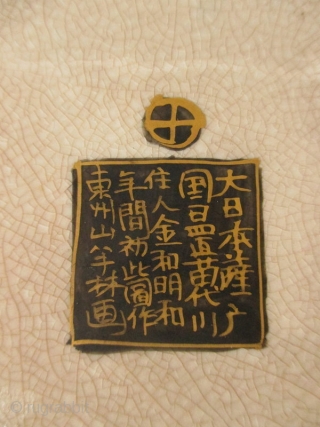 大日本薩广
国日置苗代川
住人金和明和
年間初此圖作
東州山 林画